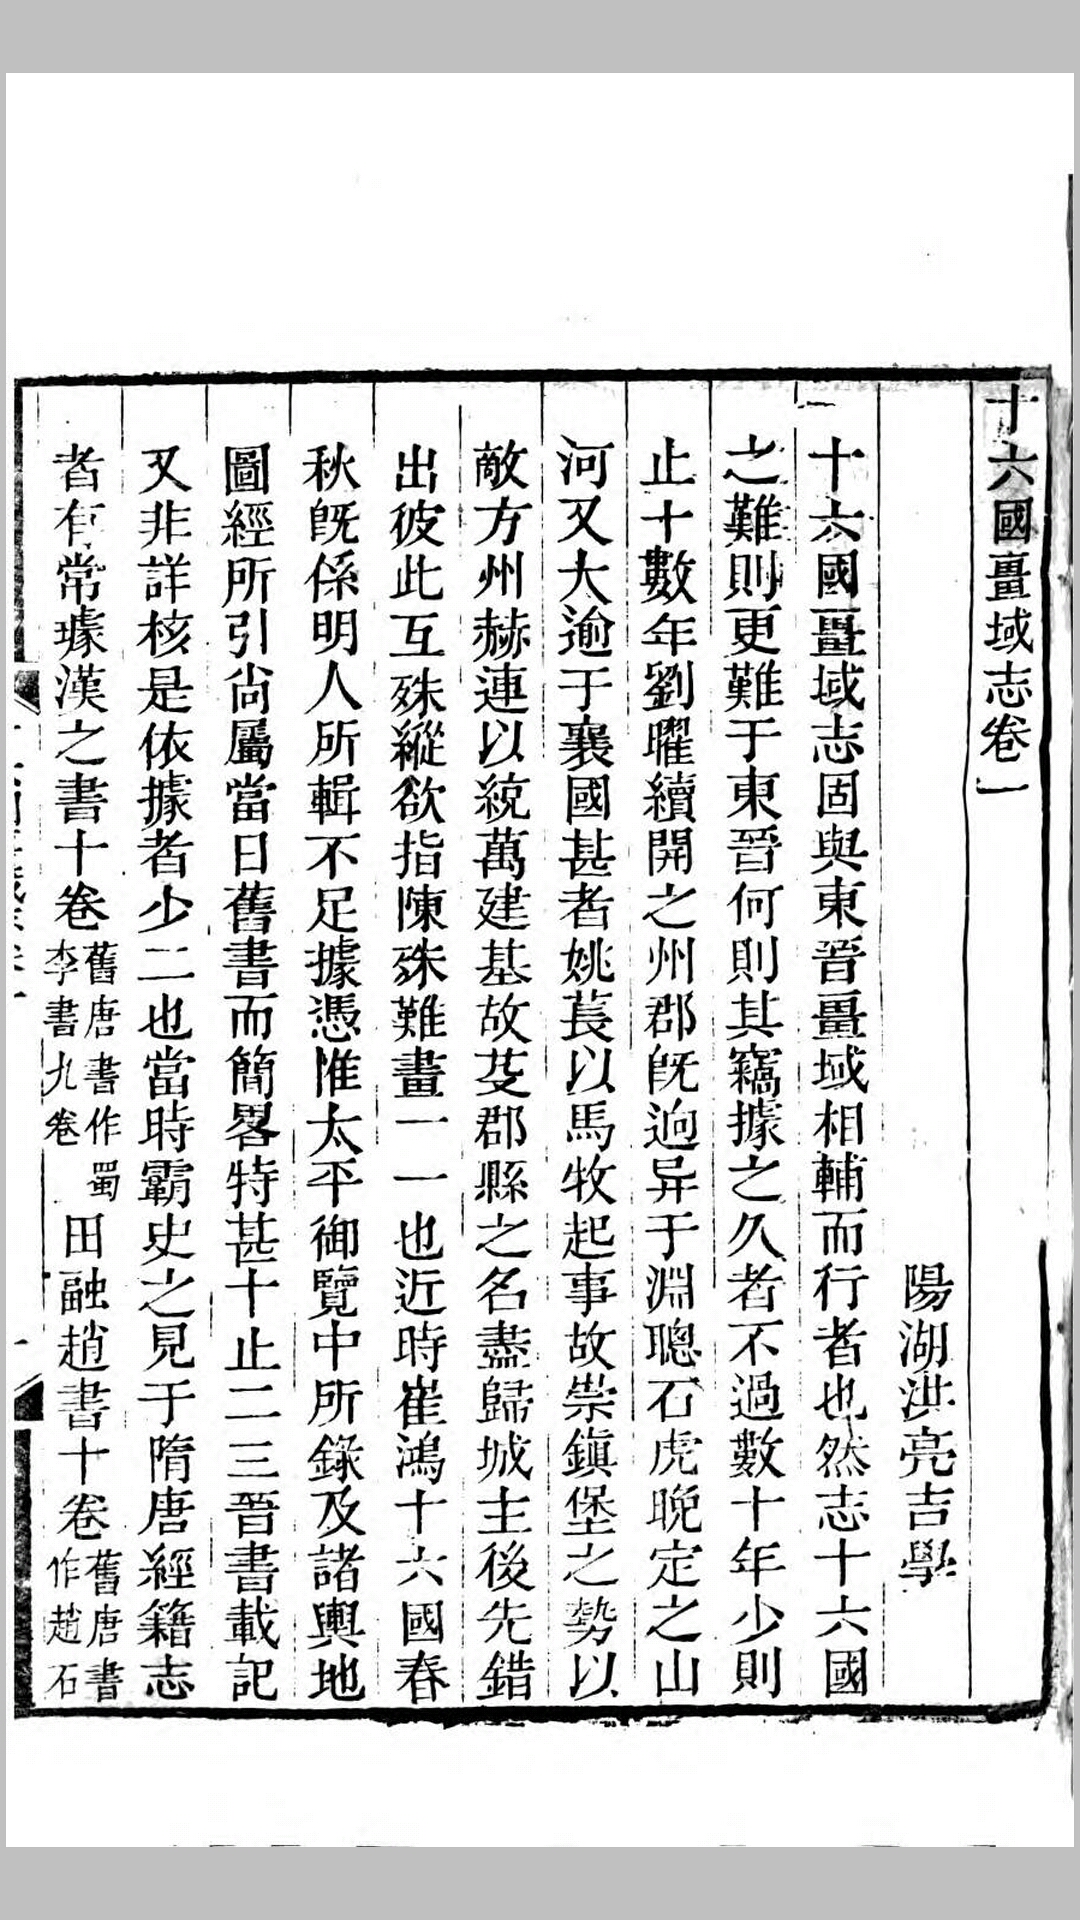 十六國畺域志卷一
陽湖洪亮吉學
十六國畺域志固與東晉畺域相輔而行者也然志十六國
之難則更難于東晉何則其竊據之久者不過數十年少則
止十數年劉曜續開之州郡旣逈异于淵聰石虎晚定之山
河又大逾于襄國甚者姚萇以馬牧起事故崇鎭堡之勢以
敵方州赫連以統萬建基故芟郡縣之名盡歸城主後先錯
出彼此互殊縱欲指陳殊難畫一一也近時崔鴻十六國春
秋旣係明人所輯不足據憑惟太平御覽中所錄及諸輿地
圖經所引尙屬當日舊書而簡畧特甚十止二三晉書載記
又非詳核是依據者少二也當時霸史之見于隋唐經籍志
者有常璩漢之書十卷舊唐書作蜀李書九卷田融趙書十卷舊唐書作趙石